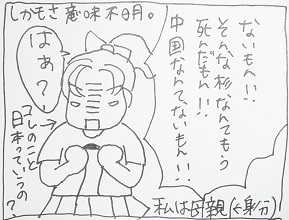 しかもさ意味不明。
ないもん!!
そんな杉なんてもう
死んだもん!!
中国なんて、ないもん!!
はぁ?
コレのこと
日本っていうの?
私は母親(←身分)!